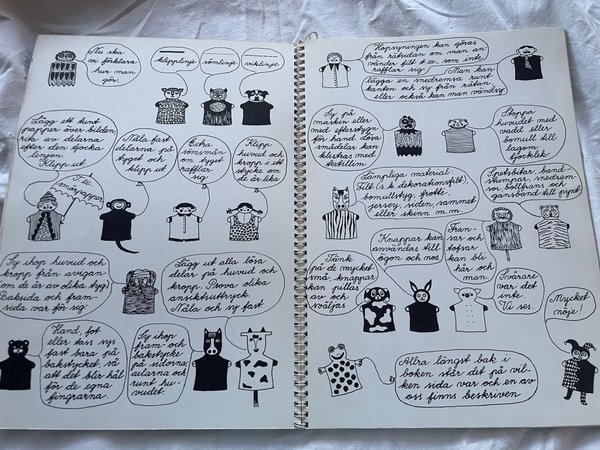 Nu ska
vi förklara
hur man
gör.
klipplinje
sömlinje
viklinje
Lägg ett tunt
papper över bilden
Rita av delarna
efter den tjocka
linjen.
Klipp ut.
T.ex.
smörpapper
Nåla fast
delarna på
tyget och
klipp ut.
Extra
sömsmån
om tyget
rafflar
sig.
Klipp
huvud och
kropp i ett
stycke om
de är lika
Sy ihop huvud och
kropp från avigan
om de är av olika tyg.
Baksida och fram-
sida var för sig.
Lägg ut alla lösa
delar på huvud och
kropp. Prova olika
ansiktsuttryck.
Nåla och sy fast.
Hand, fot
eller tass sys
fast bara på
bakstycket, så
att det blir hål
för de egna
fingrarna.
Sy ihop
fram- och
bakstycke
på sidorna,
ärmarna och
runt hu-
vudet.
Hopsyningen kan göras
från rätsidan om man an-
vänder filt t.ex. som inte
rafflar sig.
Man kan
lägga en snedremsa runt
kanten och sy från rätan
eller också kan man vändsy.
Sy på
maskin eller
med efterstygn
för hand. Små
smådelar kan
klistras med
textillim.
Stoppa
huvudet med
vadd eller
bomull till
lagom
tjocklek.
Lämpliga material:
Filt (s.k. dekorationsfilt),
bomullstyg, frotté
jersey, siden, sammet
eller skinn m.m.
Spetsbitar, band-
stumpar, snedrem-
sor, bollfrans och
gansband till pynt.
Tänk
på de mycket
små, knappar
kan pillas
av och
sväljas
Knappar kan
användas till
ögon och nos.
Fran-
sar och
tofsar
kan bli
hår och
man.
Svårare
var det
inte.
Vi ses.
Mycket
nöje!
Allra längst bak i
boken står det på vil-
ken sida var och en av
oss finns beskriven